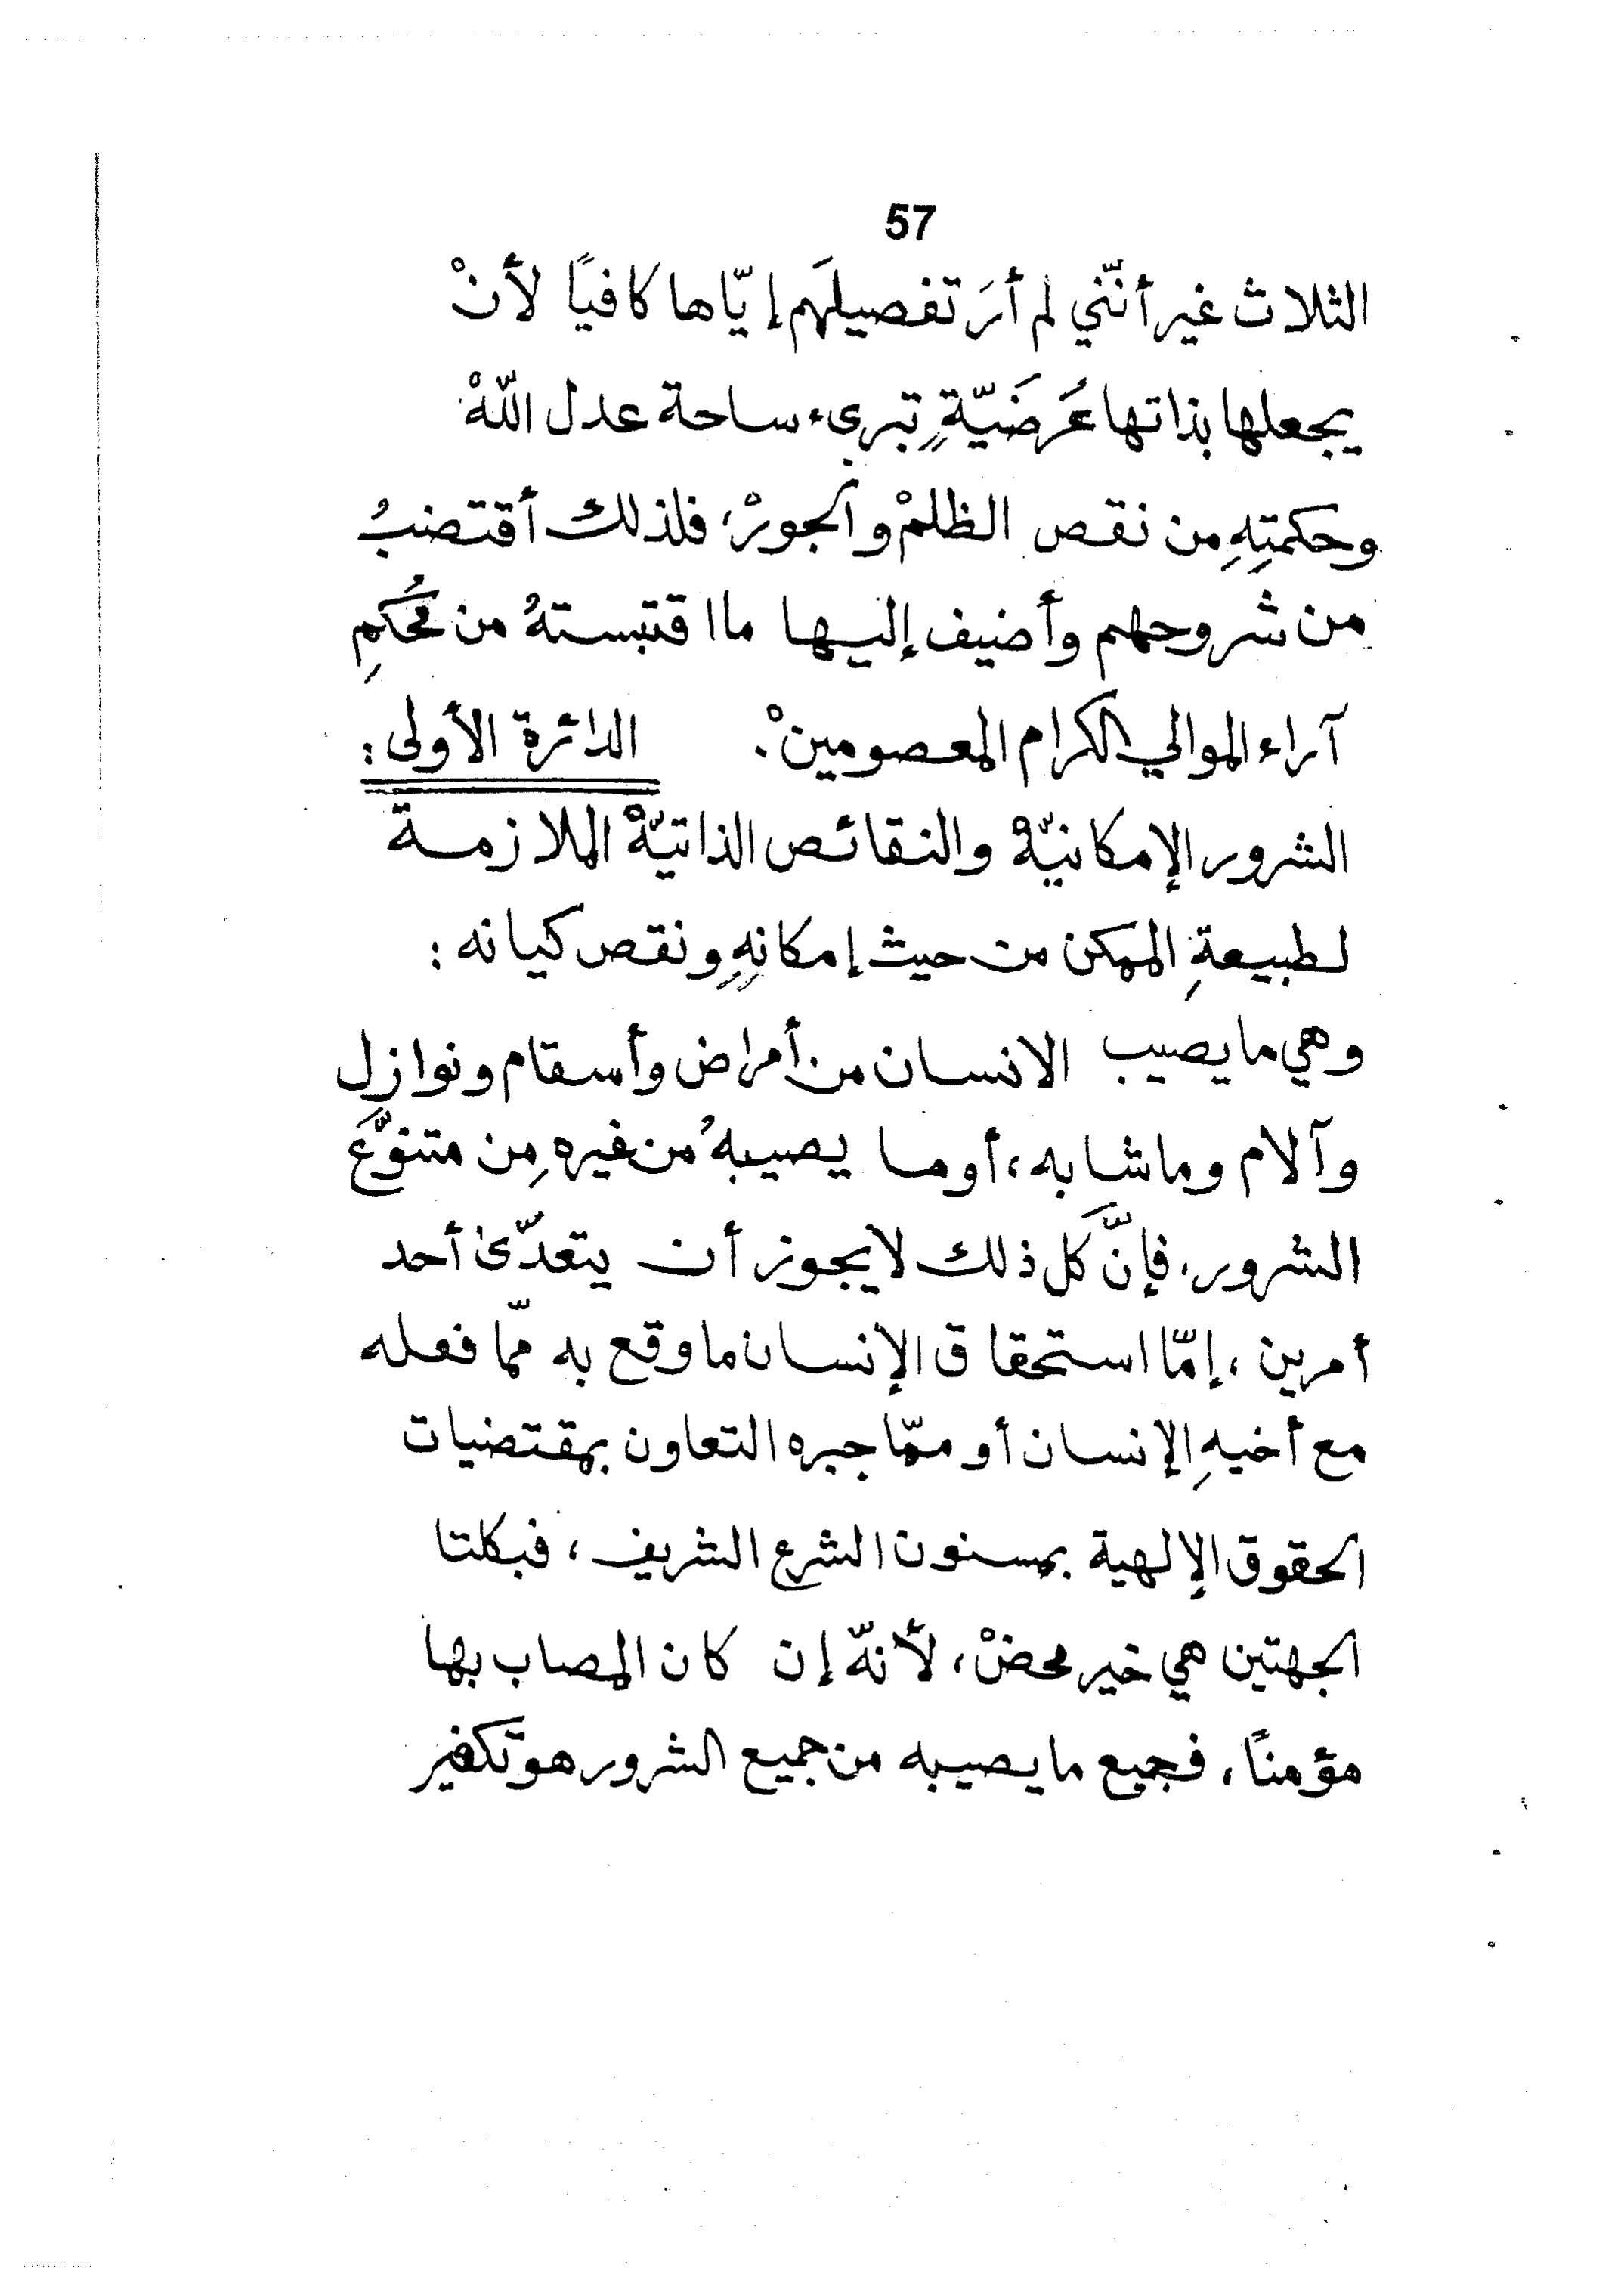 57
الثلاث غير أنّني لم أرَ تفصيلَهم إيّاها كافيًا لأنْ
يجعلها بذاتها عَرَضَيّةٍ تبرىء ساحة عدل اللّهْ
وحكمتِهِ من نقص الظلمْ والجورْ، فلذلك أقتضبُ
من شروحهم وأضيف إليها ما اقتبستهُ من مُحكمِ
آراء الموالي الكرام المعصومينْ. الدائرة الأولى:
الشرور الإمكانيّةْ والنقائص الذاتيّةْ الملازمة
لطبيعةِ الممكن من حيث إمكانِهِ ونقص كيانه:
وهي ما يصيب الانسان من أمراض وأسقام ونوازل
وآلام وما شابه، أو ما يصيبهُ من غيره مِن متنوّعَ
الشرور، فإنَّ كل ذلك لا يجوز أن يتعدّىٰ أحد
أمرين، إمّا استحقاق الإنسان ما وقع به ممّا فعله
مع أخيهِ الإنسان أو ممّا جبره التعاون بمقتضيات
الحقوق الإلهية بمسنون الشرع الشريف، فبكلتا
الجهتين هي خير محضْ، لأنهّ إن كان المصاب بها
مؤمنًا، فجميع ما يصيبه من جميع الشرور هو تكفير